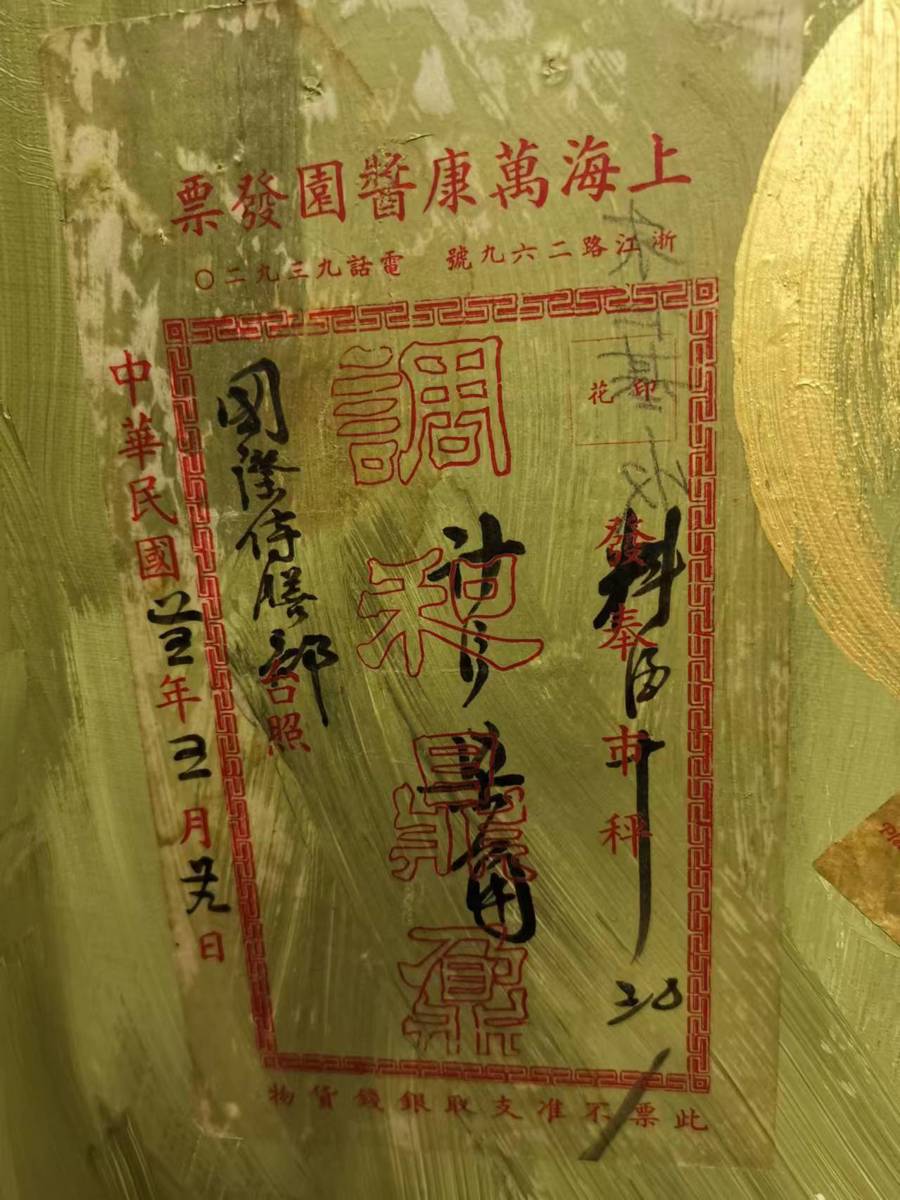 上海萬康醬園發票
浙江路二六九號 電話九三九二〇
印花
發奉市秤
料酒
調和鼎鼐
計
國際侍膳部台照
中華民國廿五年五月廿九日
此票不准支取銀錢貨物